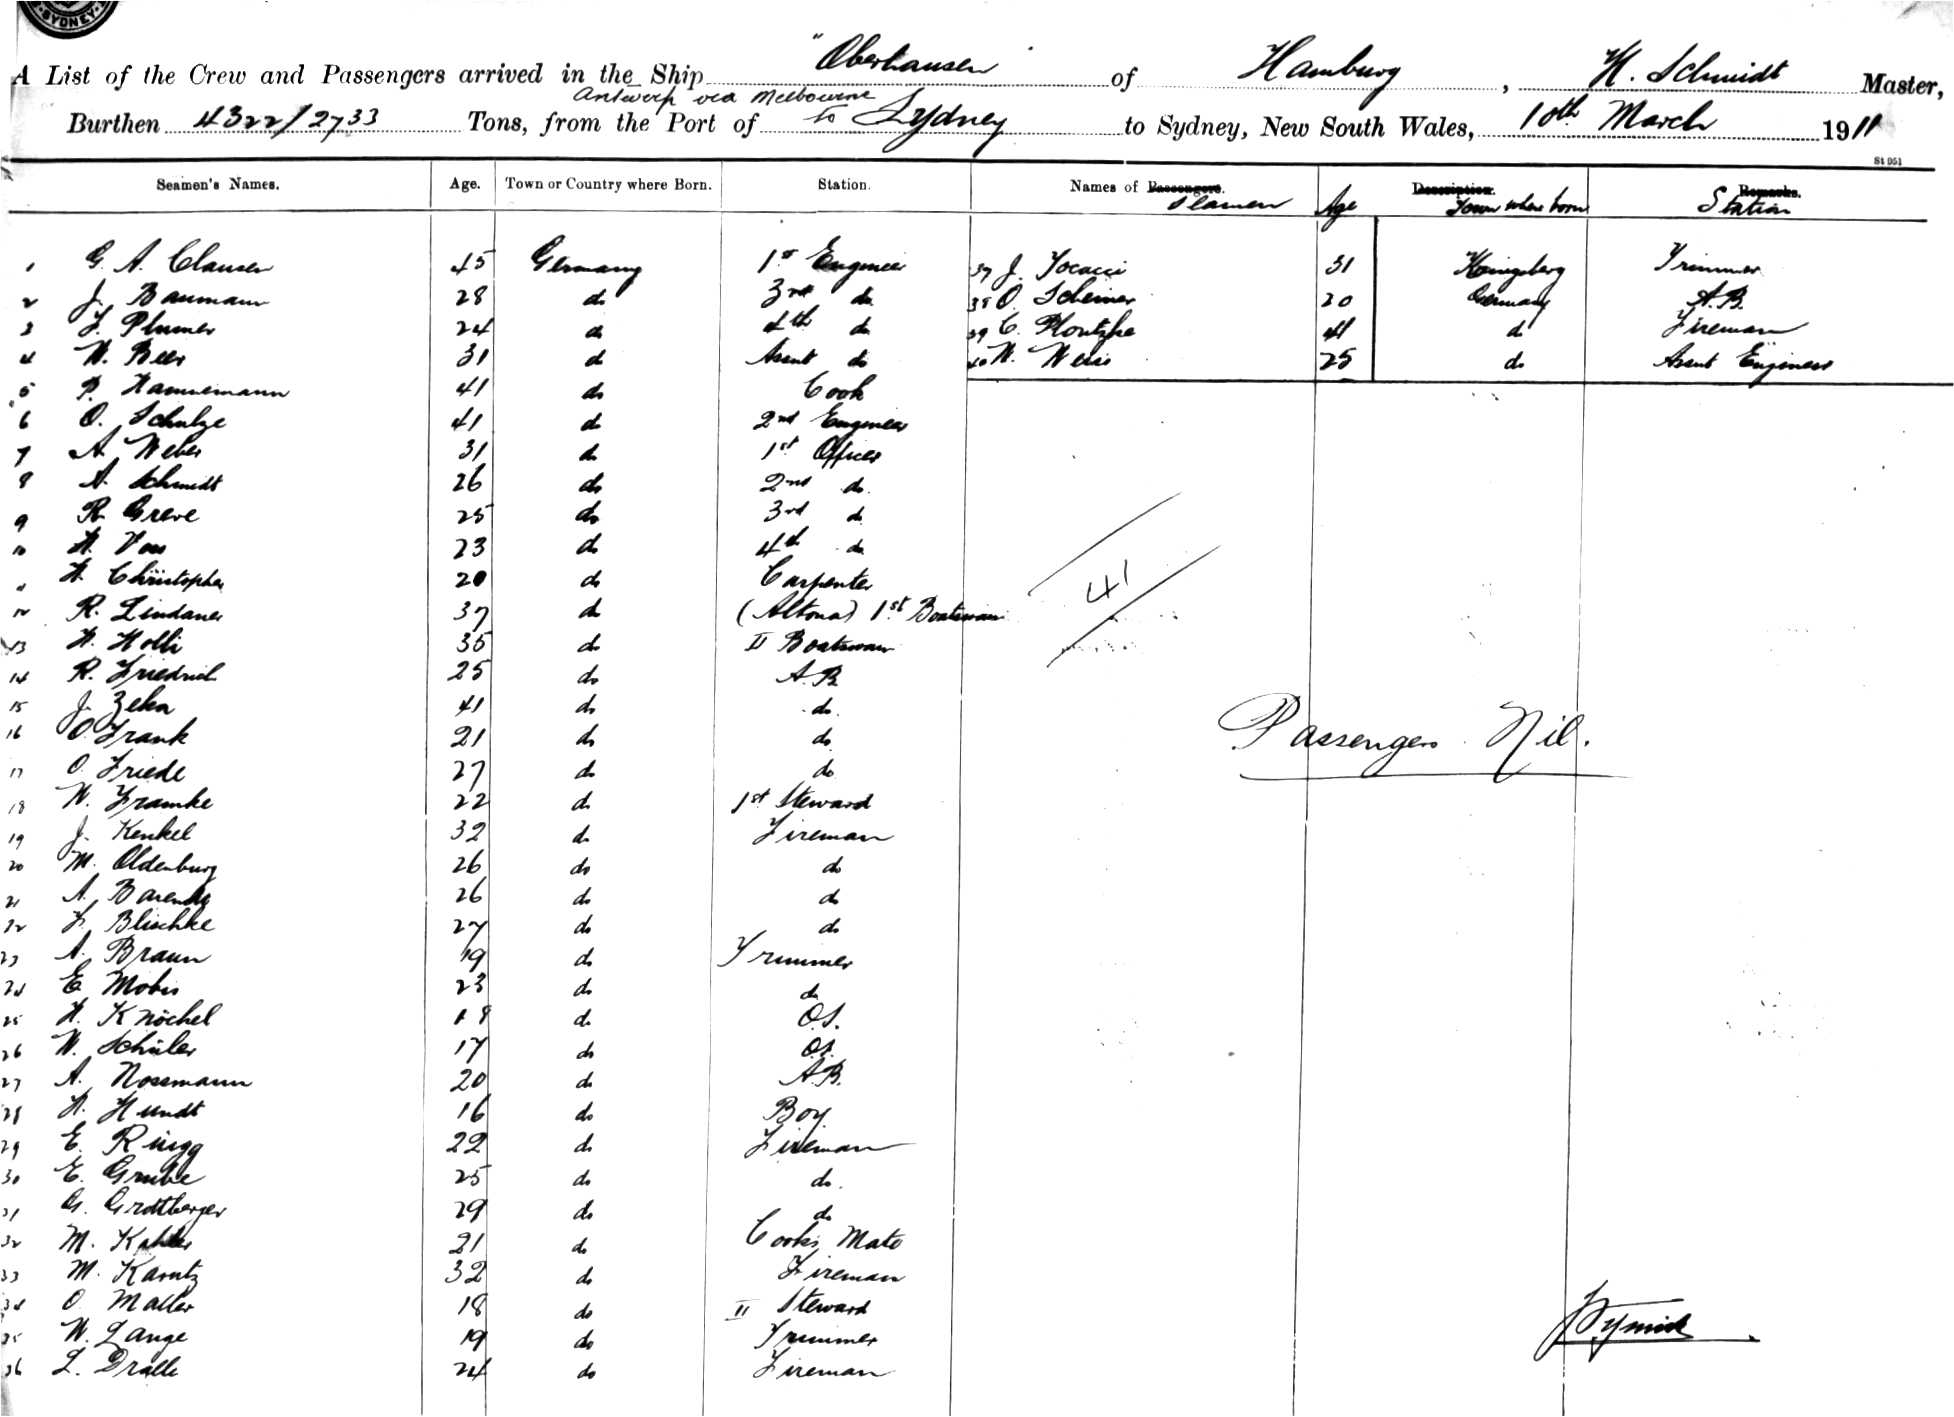 SYDNEY
A List of the Crew and Passengers arrived in the Ship "Oberhausen" of Hamburg, H. Schmidt Master,
Antwerp via Melbourne
Burthen 4322/2733 Tons, from the Port of to Sydney to Sydney, New South Wales, 10th March 1911
St 951
Seamen's Names. Age. Town or Country where Born. Station. Names of Passengers. Seamen Age Description. Town where born Remarks. Station
1 G. A. Clausen 45 Germany 1st Engineer 37 J. 31 Königsberg Trimmer
2 J. Baumann 28 do 3rd do 38 O. Scheiner 20 Germany A.B.
3 F. Plumer 24 do 4th do 39 C. 41 do Fireman
4 W. Beer 31 do Assnt do 40 W. Weiss 25 do Assnt Engineer
5 P. Hannemann 41 do Cook
6 O. Schulze 41 do 2nd Engineer
7 A. Weber 31 do 1st Officer
8 A. Schmidt 26 do 2nd do
9 R. Greve 25 do 3rd do
10 H. Voss 23 do 4th do
11 H. Christopher 20 do Carpenter
12 R. Lindauer 37 do (Altona) 1st Boatswain
13 H. Holli 35 do II Boatswain
41
14 R. Friedrich 25 do A.B.
15 J. Zeka 41 do do
16 O. Frank 21 do do
Passengers Nil.
17 O. Friede 27 do do
18 W. Framke 22 do 1st Steward
19 J. Kenkel 32 do Fireman
20 M. Oldenburg 26 do do
21 A. 26 do do
22 F. Blischke 27 do do
23 A. Braun 19 do Trimmer
24 E. Mobis 23 do do
25 H. Knöchel 18 do O.S.
26 W. Schüler 17 do O.S.
27 A. Nossmann 20 do A.B.
28 H. Hundt 16 do Boy
29 E. Ringg 22 do Fireman
30 E. Grube 25 do do
31 G. Grottberger 29 do do
32 M. Kahler 21 do Cooks Mate
33 M. Karutz 32 do Fireman
34 O. Maller 18 do II Steward
35 W. Lange 19 do Trimmer
36 L. Dralle 24 do Fireman